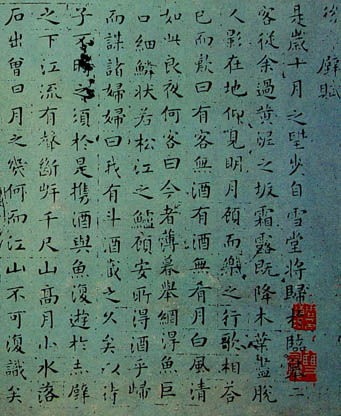 後壁賦
是歲十月之望步自雪堂將歸於臨皋二
客從余過黃泥之坂霜露既降木葉盡脫
人影在地仰見明月顧而樂之行歌相答
已而歎曰有客無酒有酒無肴月白風清
如此良夜何客曰今者薄暮舉網得魚巨
口細鱗狀若松江之鱸顧安所得酒乎歸
而謀諸婦婦曰我有斗酒藏之久矣以待
子不時之須於是攜酒與魚復遊於赤壁
之下江流有聲斷岸千尺山高月小水落
石出曾日月之幾何而江山不可復識矣